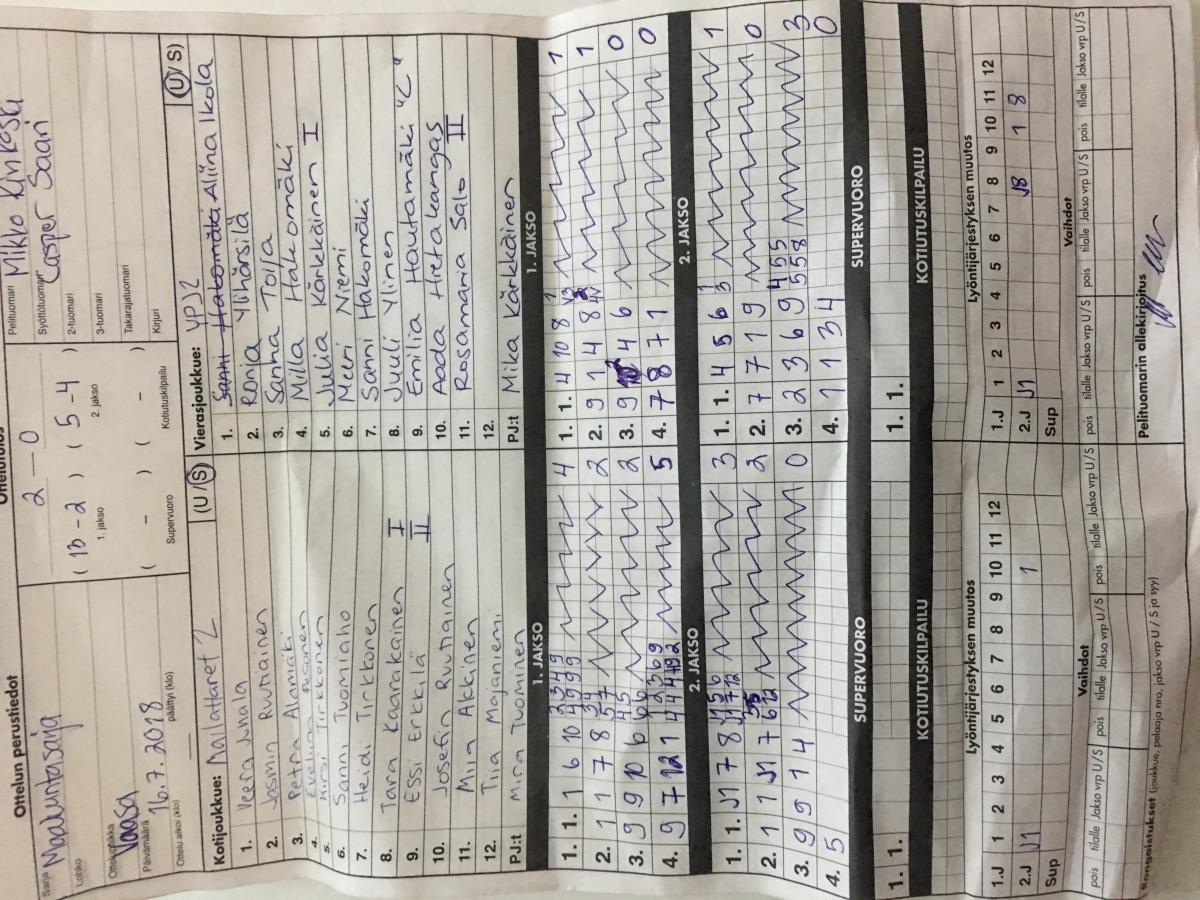 Ottelun perustiedot
Sarja Maakuntasarja
Lohko
Ottelupaikka Vaasa
Päivämäärä 16.7.2018
Ottelu alkoi (klo) päättyi (klo)
Ottelutulos
2 – 0
(13 - 2) (5 - 4)
1. jakso 2. jakso
( - ) ( - )
Supervuoro Kotiutuskilpailu
Pelituomari Mikko Kinkoski
Syöttötuomari Casper Saari
2-tuomari
3-tuomari
Takarajatuomari
Kirjuri
Kotijoukkue: Mailattaret 2 (U / S)
1. Veera Juhala
2. Jasmin Ruutiainen
3. Petra Alamäki
4.
5. Kirsi Tirkkonen
6. Sanni Tuomiaho
7. Heidi Tirkkonen
8. Tara Kaarakainen I
9. Essi Erkkilä II
10. Josefin Ruutiainen
11. Miia Akkinen
12. Tiia Majaniemi
PJ:t Mira Tuominen
Vierasjoukkue: YPJ2 (U / S)
1. Sanni Hakomäki Aliina Ikola
2. Ronja Ylihärsilä
3. Sanna Toila
4. Milla Hakomäki
5. Julia Kärkkäinen I
6. Meeri Niemi
7. Sanni Hakomäki
8. Juuli Ylinen
9. Emilia Hautamäki "C"
10. Aada Hietakangas
11. Rosamaria Salo II
12.
PJ:t Mika Kärkkäinen
1. JAKSO
1. 1. 1 6 10 4
2. 1 1 7 8 2
3. 9 9 10 6 2
4. 9 7 12 1 5
1. JAKSO
1. 1. 4 10 8 1
2. 9 1 4 8 1
3. 9 4 6 0
4. 7 8 7 1 0
2. JAKSO
1. 1. J1 7 8 3
2. 1 1 J1 7 2
3. 9 9 1 4 0
4. 5
2. JAKSO
1. 1. 4 5 6 1
2. 7 7 1 9 0
3. 2 3 6 9 3
4. 1 1 3 4 0
SUPERVUORO
1. 1.
SUPERVUORO
1. 1.
KOTIUTUSKILPAILU
KOTIUTUSKILPAILU
Lyöntijärjestyksen muutos
1.J 1 2 3 4 5 6 7 8 9 10 11 12
2.J J1 1
Sup
Lyöntijärjestyksen muutos
1.J 1 2 3 4 5 6 7 8 9 10 11 12
2.J J1 J8 1 8
Sup
Vaihdot
pois tilalle Jakso vrp U / S pois tilalle Jakso vrp U / S pois tilalle Jakso vrp U / S
Vaihdot
pois tilalle Jakso vrp U / S pois tilalle Jakso vrp U / S pois tilalle Jakso vrp U / S
Rangaistukset (joukkue, pelaaja nro, jakso vrp U / S ja syy)
Pelituomarin allekirjoitus